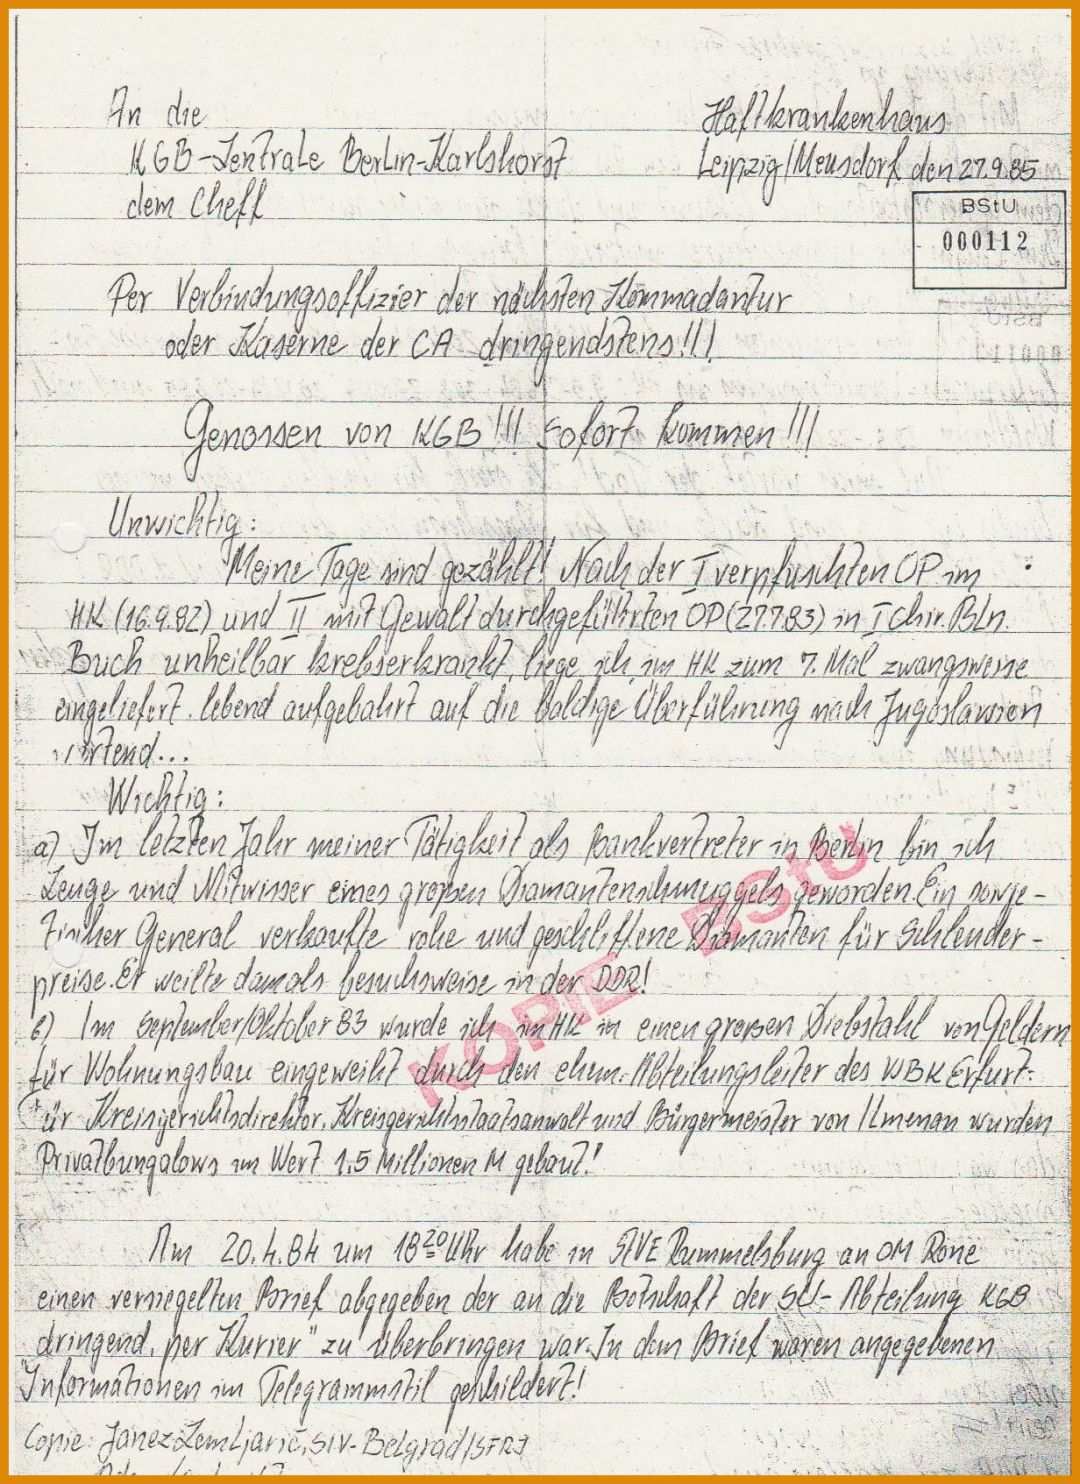 An die
Haftkrankenhaus
KGB-Zentrale Berlin-Karlshorst
Leipzig/Meusdorf den 27.9.85
dem Cheff
BStU
000112
Per Verbindungsoffizier der nächsten Kommadantur
oder Kaserne der CA dringendstens!!!
Genossen von KGB!!! Sofort kommen!!!
Unwichtig:
Meine Tage sind gezählt! Nach der I verpfuschten OP im
HK (16.9.82) und II mit Gewalt durchgeführten OP (27.7.83) in I Chir. Bln.
Buch unheilbar krebserkrankt, liege ich im HK zum 7. Mal zwangsweise
eingeliefert. lebend aufgebahrt auf die baldige Überführung nach Jugoslawien
wartend...
Wichtig:
a) Im letzten Jahr meiner Tätigkeit als Bankvertreter in Berlin bin ich
Zeuge und Mitwisser eines großen Diamantenschmuggels geworden. Ein sowje-
tischer General verkaufte rohe und geschliffene Diamanten für Schleuder-
preise. Er weilte damals besuchsweise in der DDR!
b) Im September/Oktober 83 wurde ich im HK in einen großen Diebstahl von Geldern
für Wohnungsbau eingeweiht durch den ehem. Abteilungsleiter des WBK Erfurt:
für Kreisgerichtsdirektor, Kreisgerichtsstaatsanwalt und Bürgermeister von Ilmenau wurden
Privatbungalows im Wert 1,5 Millionen M gebaut!
KOPIE BStU
Am 20.4.84 um 18 20 Uhr habe in StVE Rummelsburg an OM Rone
einen versiegelten Brief abgegeben der an die Botschaft der SU-Abteilung KGB
dringend "per Kurier" zu überbringen war. In dem Brief waren angegebenen
Informationen im Telegrammstil geschildert!
Copie: Janez Zemljarič, SIV-Belgrad/SFRJ